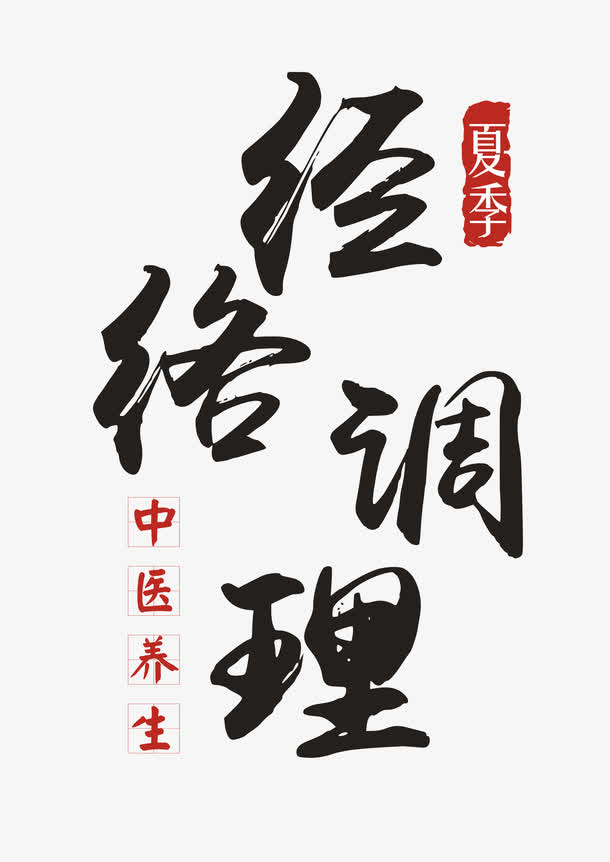 夏季
经络调理
中医养生